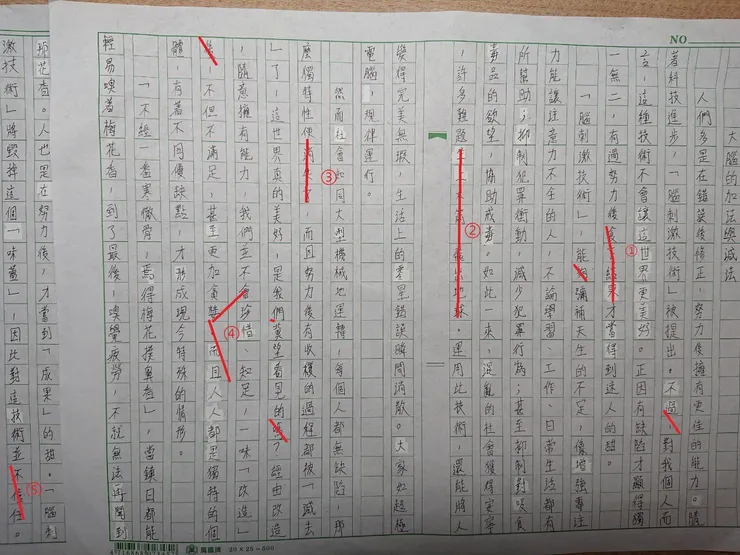 NO
大腦的加法與減法
人們多是在錯誤後修正，努力後擁有更佳的能力。隨
著科技進步，「腦刺激技術」被提出。不過，對我個人而
言，這種技術不會讓這世界更美好。正因有缺陷才顯得獨
一無二，有過努力後 ① 才當得到迷人的甜。
「腦刺激技術」，能夠彌補天生的不足，像增強專注
力能讓注意力不全的人，不論學習、工作、日常生活都有
所幫助；抑制犯罪衝動，減少犯罪行為；甚至抑制對吸食
毒品的欲望，協助戒毒。如此一來，混亂的社會獲得安寧
，許多難題 ② 地球。運用此技術，還能將人
變得完美無瑕，生活上的零星錯誤瞬間消散。大家如超極
電腦，規律運行。
然而社會如同大型機械地運轉，每個人都無缺陷，那
麼獨特性便消失了 ③ ，而且努力後有收穫的過程都被「減去
」了，這世界真的美好，是我們冀望看見的嗎？經由改造
，隨意擁有能力，我們並不會珍惜、知足，一味「改造」
後，不但不滿足，甚至更加貪婪。④ 而且人人都是獨特的個
體，有著不同優缺點，才形成現今特殊的情形。
「不經一番寒徹骨，焉得梅花撲鼻香」，當鎮日都能
輕易嗅著梅花香，到了最後，嗅覺疲勞，不就無法再聞到
那花香。人也是在努力後，才嘗到「成果」的甜。「腦刺
激技術」將毀掉這個「味蕾」，因此對這技術並不信任。 ⑤
20×25=500